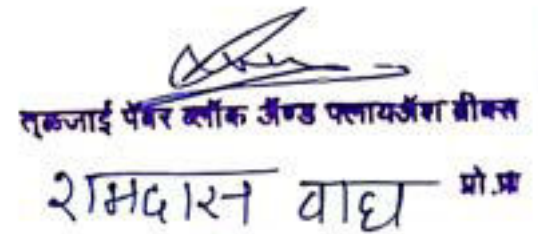 तुळजाई पेंवर ब्लॉक ॲण्ड फ्लायॲश ब्रीक्स
रामदास वाघ प्रो.प्रा